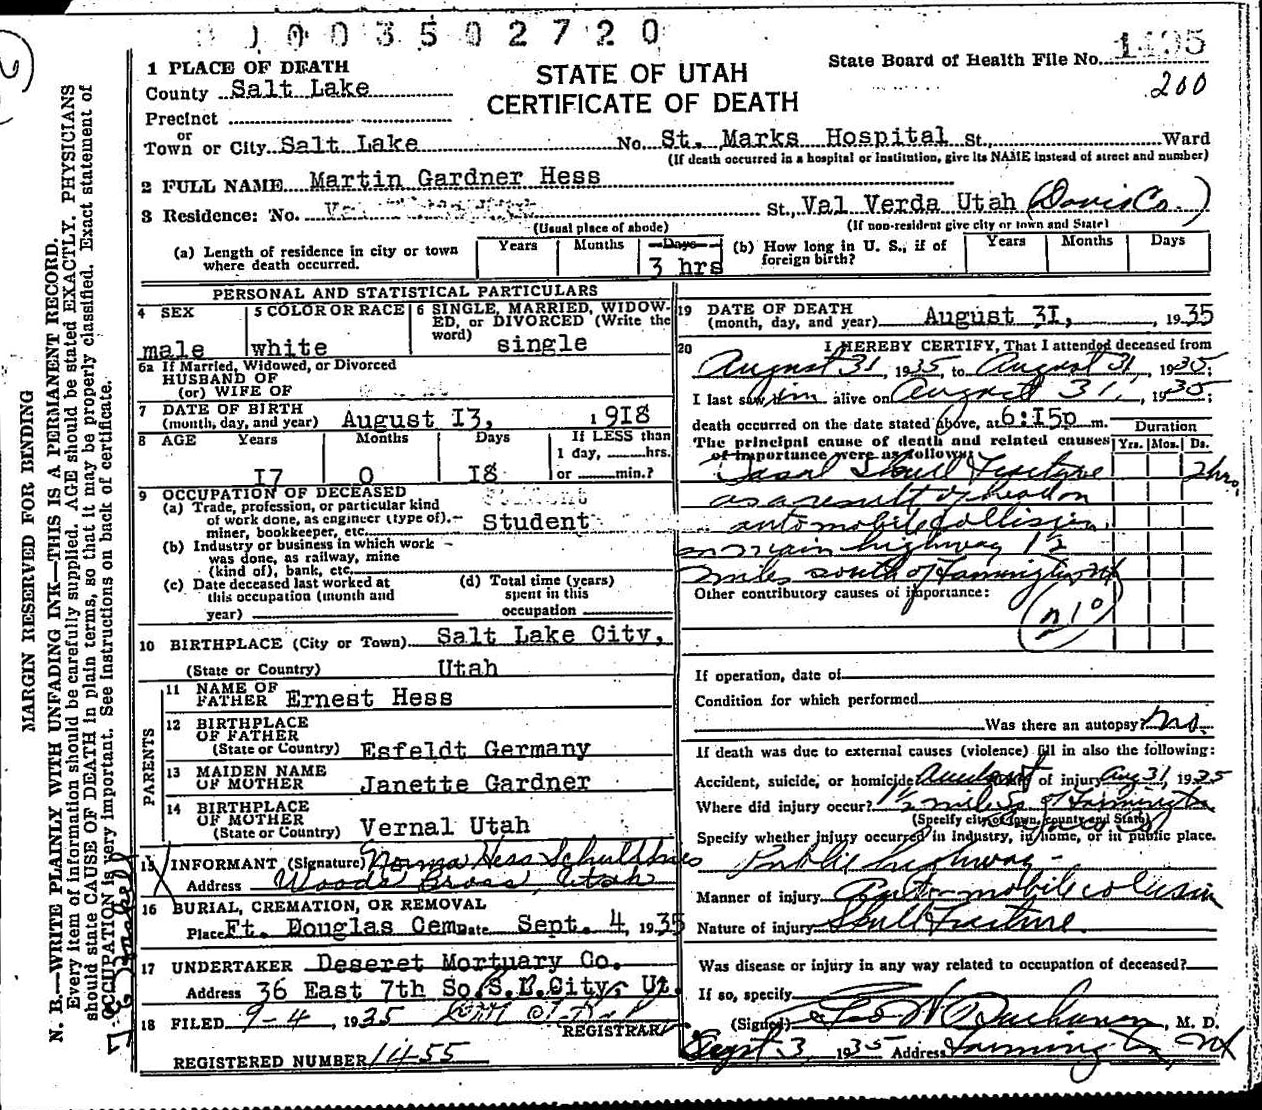 0003502720
1 PLACE OF DEATH
STATE OF UTAH
CERTIFICATE OF DEATH
State Board of Health File No. 1495
200
County Salt Lake
Precinct
or
Town or City Salt Lake No. St. Marks Hospital St., Ward
(If death occurred in a hospital or institution, give its NAME instead of street and number)
2 FULL NAME Martin Gardner Hess
3 Residence: No. St., Val Verda Utah (Davis Co.)
(Usual place of abode) (If non-resident give city or town and State)
(a) Length of residence in city or town where death occurred. Years Months Days 3 hrs
(b) How long in U. S., if of foreign birth? Years Months Days
PERSONAL AND STATISTICAL PARTICULARS
4 SEX male
5 COLOR OR RACE white
6 SINGLE, MARRIED, WIDOWED, or DIVORCED (Write the word) single
6a If Married, Widowed, or Divorced
HUSBAND OF
(or) WIFE OF
7 DATE OF BIRTH
(month, day, and year) August 13, 1918
8 AGE Years Months Days If LESS than
1 day, hrs.
17 0 18 or min.?
9 OCCUPATION OF DECEASED
(a) Trade, profession, or particular kind
of work done, as engineer (type of),
miner, bookkeeper, etc. Student
(b) Industry or business in which work
was done, as railway, mine
(kind of), bank, etc.
(c) Date deceased last worked at
this occupation (month and
year)
(d) Total time (years)
spent in this
occupation
10 BIRTHPLACE (City or Town) Salt Lake City,
(State or Country) Utah
PARENTS
11 NAME OF
FATHER Ernest Hess
12 BIRTHPLACE
OF FATHER
(State or Country) Esfeldt Germany
13 MAIDEN NAME
OF MOTHER Janette Gardner
14 BIRTHPLACE
OF MOTHER
(State or Country) Vernal Utah
15 INFORMANT (Signature) Norma Hess
Address Woods Cross, Utah
16 BURIAL, CREMATION, OR REMOVAL
Place Ft. Douglas Cem Date Sept. 4, 1935
17 UNDERTAKER Deseret Mortuary Co.
Address 36 East 7th So. S.L.City, Ut.
18 FILED 9-4, 1935
REGISTRAR
REGISTERED NUMBER 1455
19 DATE OF DEATH
(month, day, and year) August 31, 1935
20 I HEREBY CERTIFY, That I attended deceased from
August 31, 1935, to August 31, 1935;
I last saw him alive on August 31, 1935;
death occurred on the date stated above, at 6:15p m.
Duration
The principal cause of death and related causes
of importance were as follows: Yrs. Mos. Ds.
Basal Skull Fracture 2 hrs.
as a result of head on
automobile collision
on main highway 1½
miles south of Farmington Ut
Other contributory causes of importance:
If operation, date of
Condition for which performed
Was there an autopsy? No.
If death was due to external causes (violence) fill in also the following:
Accident, suicide, or homicide Accident Date of injury Aug 31, 1935
Where did injury occur? 1½ miles So of Farmington
(Specify city or town, county and State) Davis Co
Specify whether injury occurred in industry, in home, or in public place.
Public highway
Manner of injury Automobile collision
Nature of injury Skull Fracture.
Was disease or injury in any way related to occupation of deceased?
If so, specify
(Signed) Buchanan, M. D.
Sept 3, 1935 Address Farmington, Ut
MARGIN RESERVED FOR BENDING
N. B.—WRITE PLAINLY WITH UNFADING INK—THIS IS A PERMANENT RECORD.
Every item of information should be carefully supplied. AGE should be stated EXACTLY. PHYSICIANS
should state CAUSE OF DEATH in plain terms, so that it may be properly classified. Exact statement of
OCCUPATION is very important. See instructions on back of certificate.